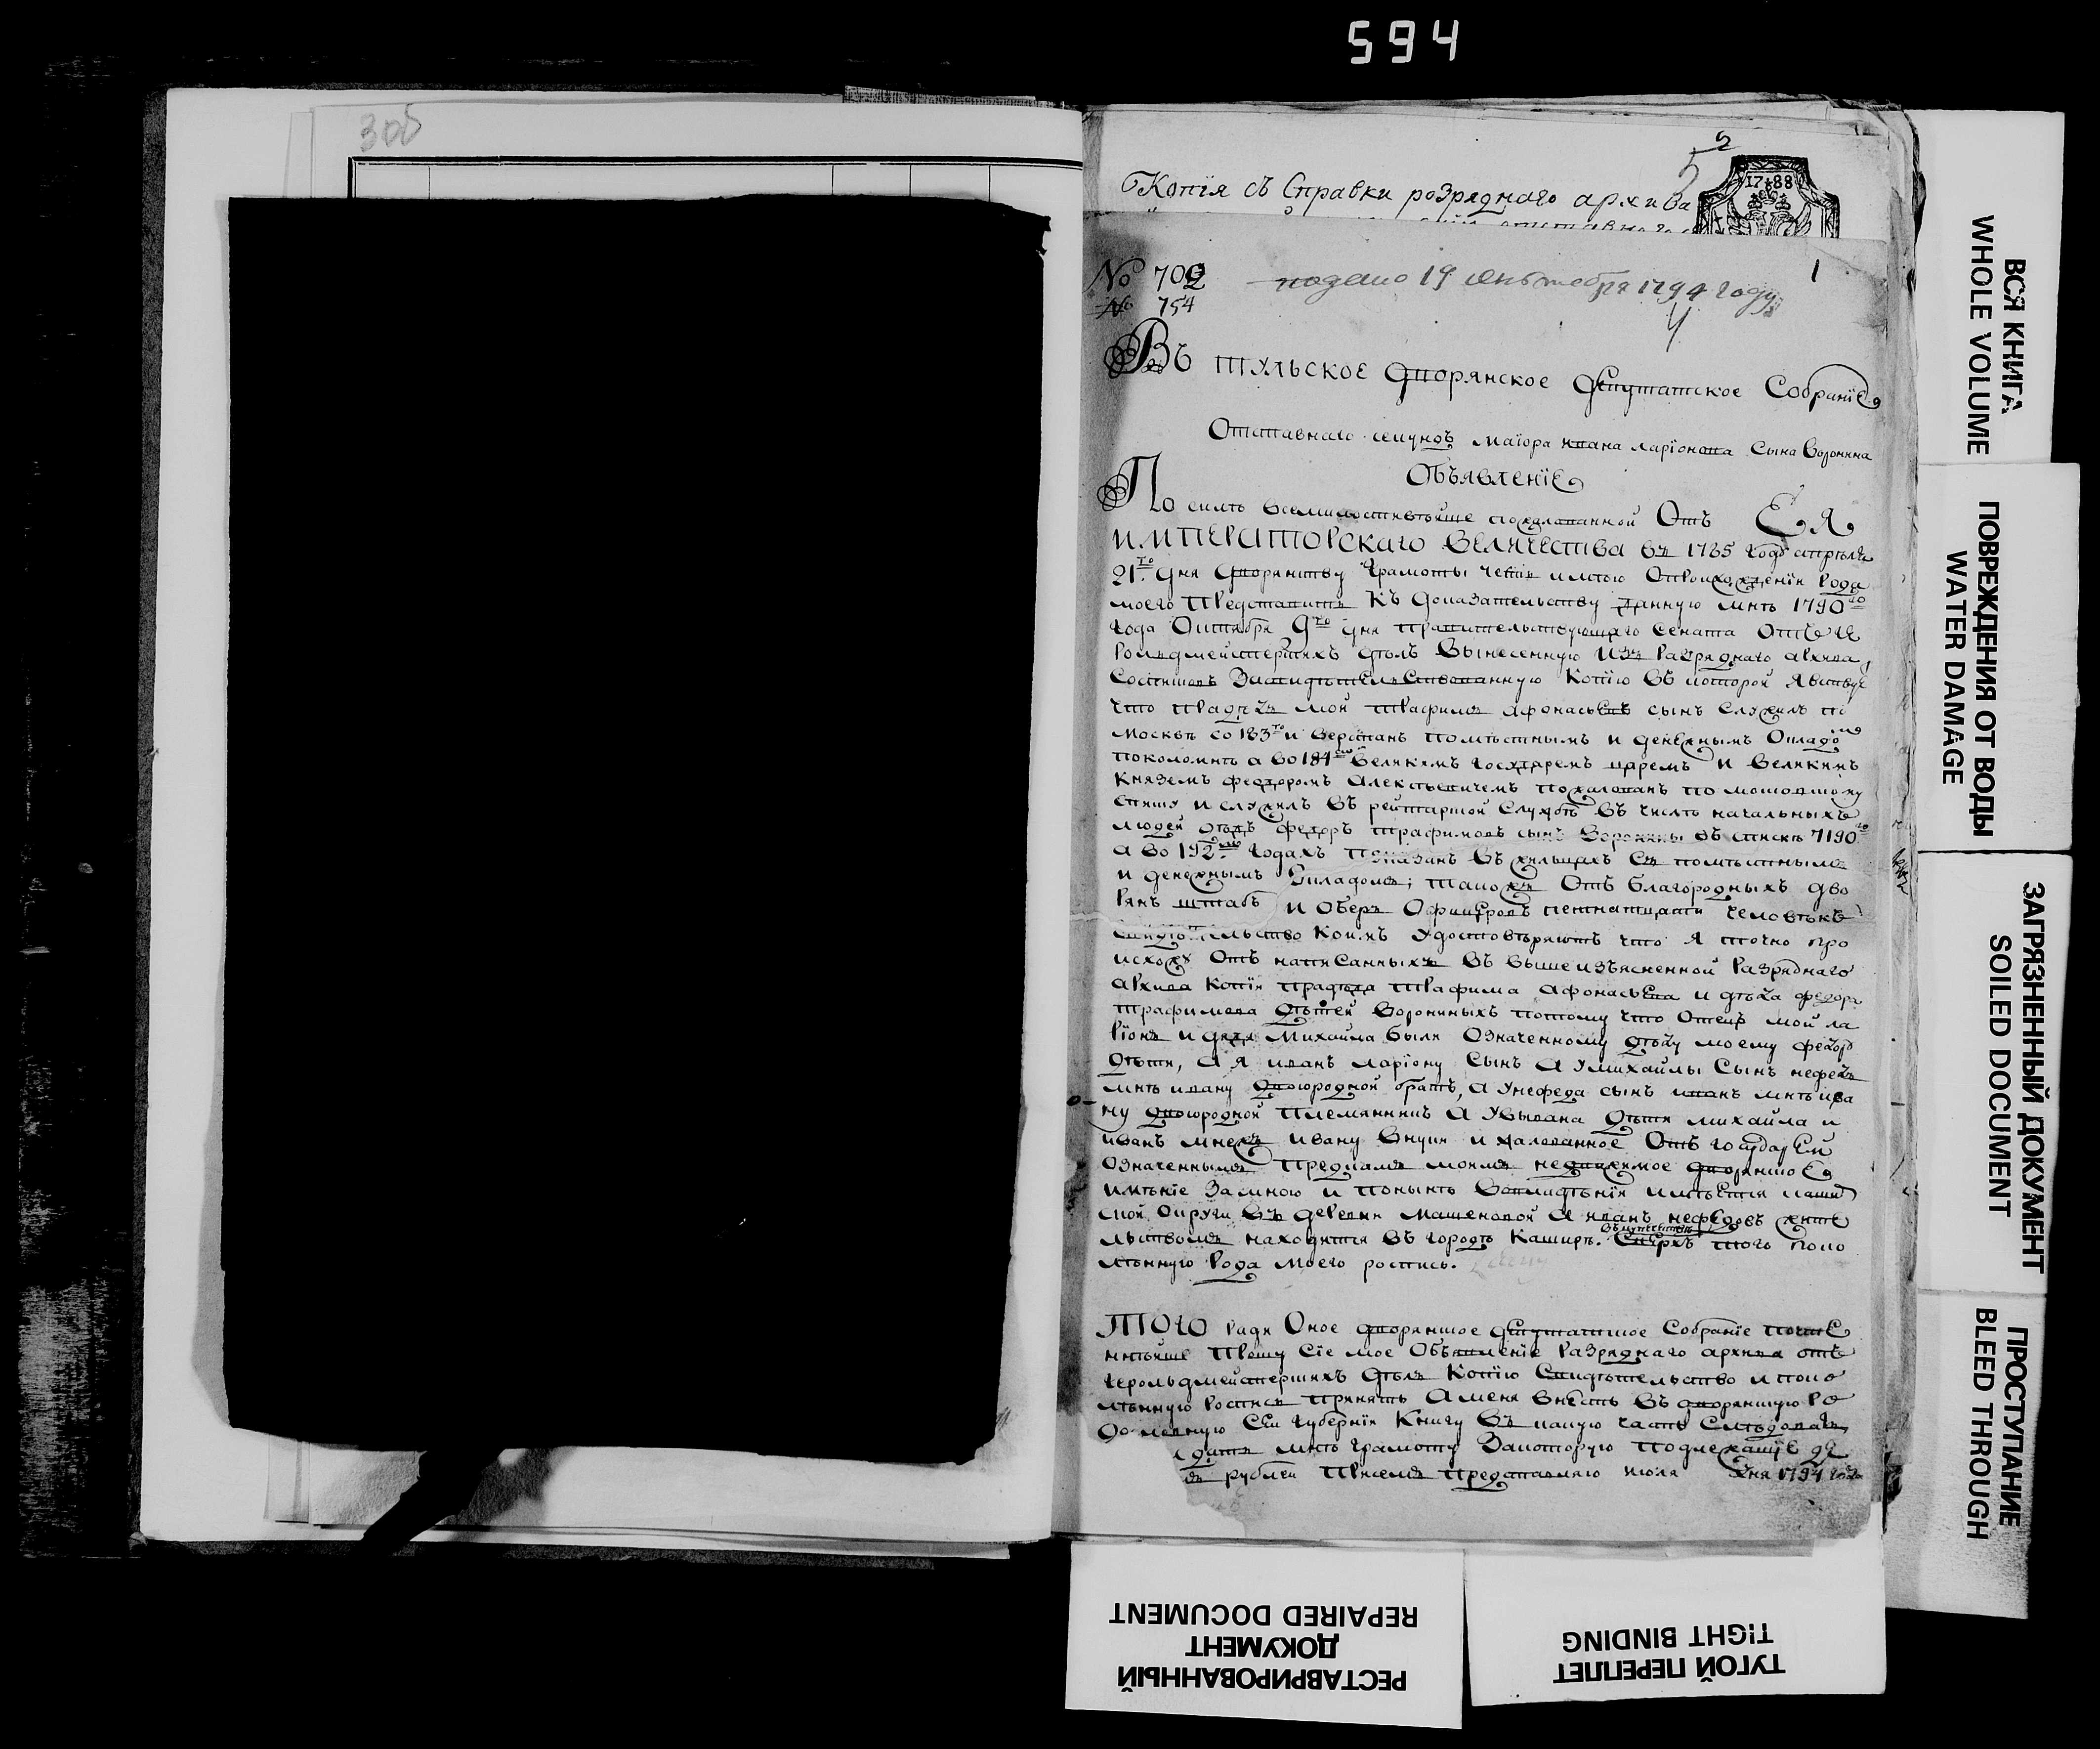 594
300
5
2
1788
Копїя съ Справки розряднаго архива
№ 702
№ 754
подано 19 сентебря 1794 году
1
4
Въ тульское дворянское депутатское Собранїе
Отставнаго секундъ маїора ивана ларїонова сына Воронина
Объявленїе
По силѣ всемилостивѣйше пожалованной Отъ ЕЯ
ИМПЕРАТОРСКАГО ВЕЛИЧЕСТВА въ 1785 году апрѣля
21го дня дворянству Грамоты честь имѣю О происхожденїи рода
моего представить къ доказательству данную мнѣ 1790го
года Октября 9го дня правительствующаго сената
Герольдмейстерскихъ дѣлъ вынесенную изъ разряднаго архива
засвидѣтельствованную копїю въ которой явствуе
что прадѣдъ мой трафимъ афонасьевъ сынъ служилъ по
москвѣ со 183го и верстанъ помѣстнымъ и денежнымъ Окладо
а во 184 великимъ государемъ царемъ и великимъ
княземъ федоромъ алексѣевичемъ пожалованъ по московскому
списку и служилъ въ рейтарской службѣ въ числѣ начальныхъ
людей дѣдъ федоръ трафимовъ сынъ Воронины въ списке 7190го
а во 192мъ годахъ показанъ въ жильцахъ съ помѣстнымъ
и денежнымъ Окладомъ; такожъ Отъ благородныхъ дво
рянъ штабъ и Оберъ Офицеровъ петнатцати человѣкъ
свидѣтельство коимъ удостовѣряютъ что я точно про
исхожу Отъ написанныхъ въ вышеизъясненной разряднаго
архива копїи прадѣда трафима афонасьева и дѣда федора
трафимова дѣтей Ворониныхъ потому что Отецъ мой ла
рїонъ и дядя михайла были Означенному дѣду моему федору
дѣти, а я иванъ ларїону сынъ а у михайлы сынъ нефедъ
мнѣ ивану двоюродной братъ, а у нефеда сынъ иванъ мнѣ ива
ну двоюродной племянникъ а у ивана дѣти михайла и
иванъ мнежъ ивану внуки и жалованное Отъ государей
Означеннымъ предкамъ моимъ недвижимое дворянское
имѣнїе за мною и понынѣ во владѣнїи имѣется каши
ской Округи въ деревни машековой а иванъ нефедовъ жите
льствомъ находится въ городѣ Каширѣ. Сверхъ того поко
лѣнную рода моего роспись.
Того ради Оное дворянское депутатское Собранїе почте
ннѣйше прошу сїе мое Объявленїе разряднаго архива отъ
герольдмейстерскихъ дѣлъ копїю свидѣтельство и поко
лѣнную роспись принять а меня внесть въ дворянскую ро
дословную сей губернїи книгу въ какую часть слѣдовать
мнѣ грамоту за которую подлежащїе де
рублей при семъ представляю июля дня 1794 года
ВСЯ КНИГА
WHOLE VOLUME
ПОВРЕЖДЕНИЯ ОТ ВОДЫ
WATER DAMAGE
ЗАГРЯЗНЕННЫЙ ДОКУМЕНТ
SOILED DOCUMENT
ПРОСТУПАНИЕ
BLEED THROUGH
РЕСТАВРИРОВАННЫЙ
ДОКУМЕНТ
REPAIRED DOCUMENT
ТУГОЙ ПЕРЕПЛЕТ
TIGHT BINDING